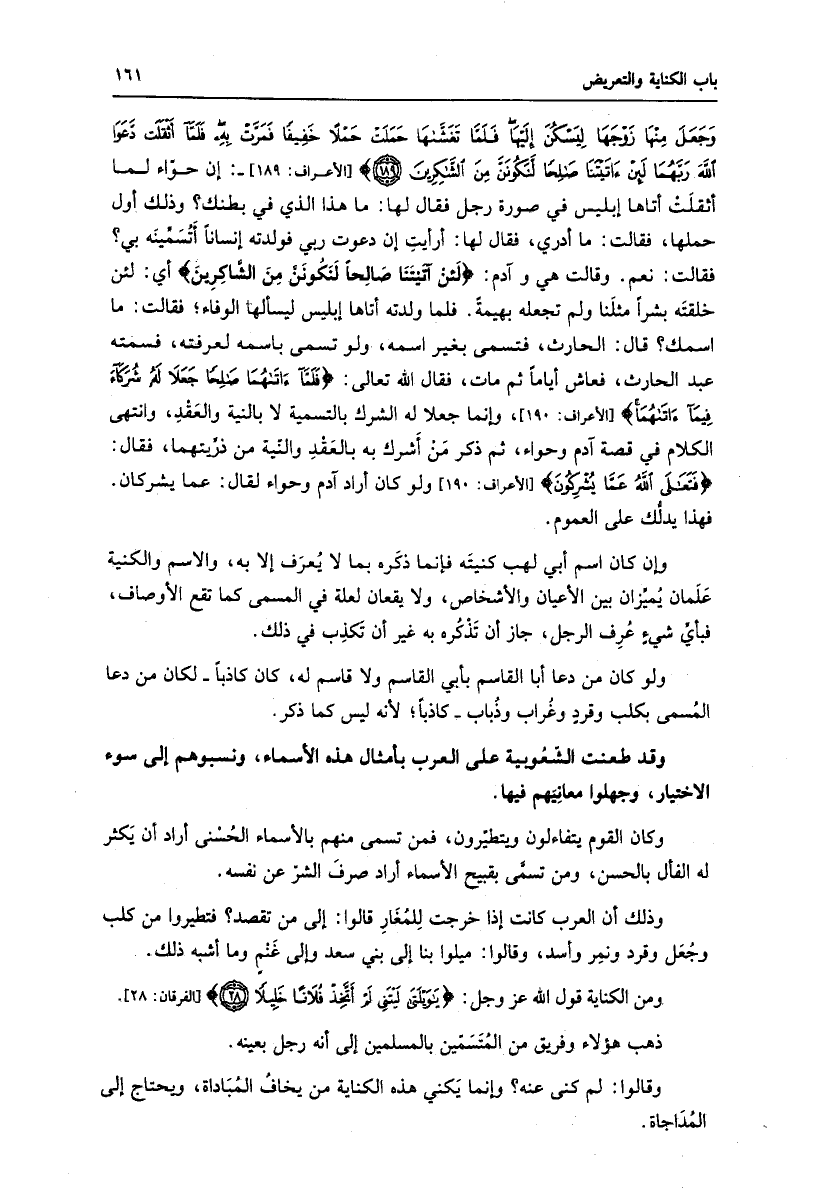 باب الكناية والتعريض ١٦١
وَجَعَلَ مِنْهَا زَوْجَهَا لِيَسْكُنَ إِلَيْهَا ۖ فَلَمَّا تَغَشَّىٰهَا حَمَلَتْ حَمْلًا خَفِيفًا فَمَرَّتْ بِهِۦ ۖ فَلَمَّآ أَثْقَلَت دَّعَوَا
ٱللَّهَ رَبَّهُمَا لَئِنْ ءَاتَيْتَنَا صَٰلِحًا لَّنَكُونَنَّ مِنَ ٱلشَّٰكِرِينَ ﴿١٨٩﴾﴾ [الأعراف: ١٨٩] ـ: إن حوّاء لما
أثقلَتْ أتاها إبليس في صورة رجل فقال لها: ما هذا الذي في بطنك؟ وذلك أول
حملها، فقالت: ما أدري، فقال لها: أرأيتِ إن دعوت ربي فولدته إنساناً أَتُسَمِّينَه بي؟
فقالت: نعم. وقالت هي و آدم: ﴿لَئنْ آتَيتَنَا صَالِحاً لَنَكُونَنَّ مِنَ الشَّاكِرِينَ﴾ أي: لئن
خلقتَه بشراً مثلَنا ولم تجعله بهيمةً. فلما ولدته أتاها إبليس ليسألها الوفاء؛ فقالت: ما
اسمك؟ قال: الحارث، فتسمى بغير اسمه، ولو تسمى باسمه لعرفته، فسمته
عبد الحارث، فعاش أياماً ثم مات، فقال الله تعالى: ﴿فَلَمَّآ ءَاتَىٰهُمَا صَٰلِحًا جَعَلَا لَهُۥ شُرَكَآءَ
فِيمَآ ءَاتَىٰهُمَا ۚ﴾ [الأعراف: ١٩٠]، وإنما جعلا له الشرك بالتسمية لا بالنية والعَقْدِ، وانتهى
الكلام في قصة آدم وحواء، ثم ذكر مَنْ أشرك به بالعَقْدِ والنّية من ذرِّيتهما، فقال:
﴿فَتَعَٰلَى ٱللَّهُ عَمَّا يُشْرِكُونَ﴾ [الأعراف: ١٩٠] ولو كان أراد آدم وحواء لقال: عما يشركان.
فهذا يدلُّك على العموم.
وإن كان اسم أبي لهب كنيتَه فإنما ذكَره بما لا يُعرَف إلا به، والاسم والكنية
عَلَمان يُميِّزان بين الأعيان والأشخاص، ولا يقعان لعلة في المسمى كما تقع الأوصاف،
فبأيِّ شيءٍ عُرِف الرجل، جاز أن تَذْكُره به غير أن تَكذِب في ذلك.
ولو كان من دعا أبا القاسم بأبي القاسم ولا قاسم له، كان كاذباً ـ لكان من دعا
المُسمى بكلب وقردٍ وغُراب وذُباب ـ كاذباً؛ لأنه ليس كما ذكر.
وقد طعنت الشّعُوبية على العرب بأمثال هذه الأسماء، ونسبوهم إلى سوء
الاختيار، وجهلوا معانِيَهم فيها.
وكان القوم يتفاءلون ويتطيّرون، فمن تسمى منهم بالأسماء الحُسْنى أراد أن يَكثر
له الفأل بالحسن، ومن تسمَّى بقبيح الأسماء أراد صرفَ الشرّ عن نفسه.
وذلك أن العرب كانت إذا خرجت لِلمُغَارِ قالوا: إلى من تقصد؟ فتطيروا من كلب
وجُعَل وقرد ونمِر وأسد، وقالوا: ميلوا بنا إلى بني سعد وإلى غَنْمٍ وما أشبه ذلك.
ومن الكناية قول الله عز وجل: ﴿يَٰوَيْلَتَىٰ لَيْتَنِى لَمْ أَتَّخِذْ فُلَانًا خَلِيلًا ﴿٢٨﴾﴾ [الفرقان: ٢٨].
ذهب هؤلاء وفريق من المُتَسَمِّين بالمسلمين إلى أنه رجل بعينه.
وقالوا: لم كنى عنه؟ وإنما يَكني هذه الكناية من يخافُ المُبَاداة، ويحتاج إلى
المُدَاجاة.